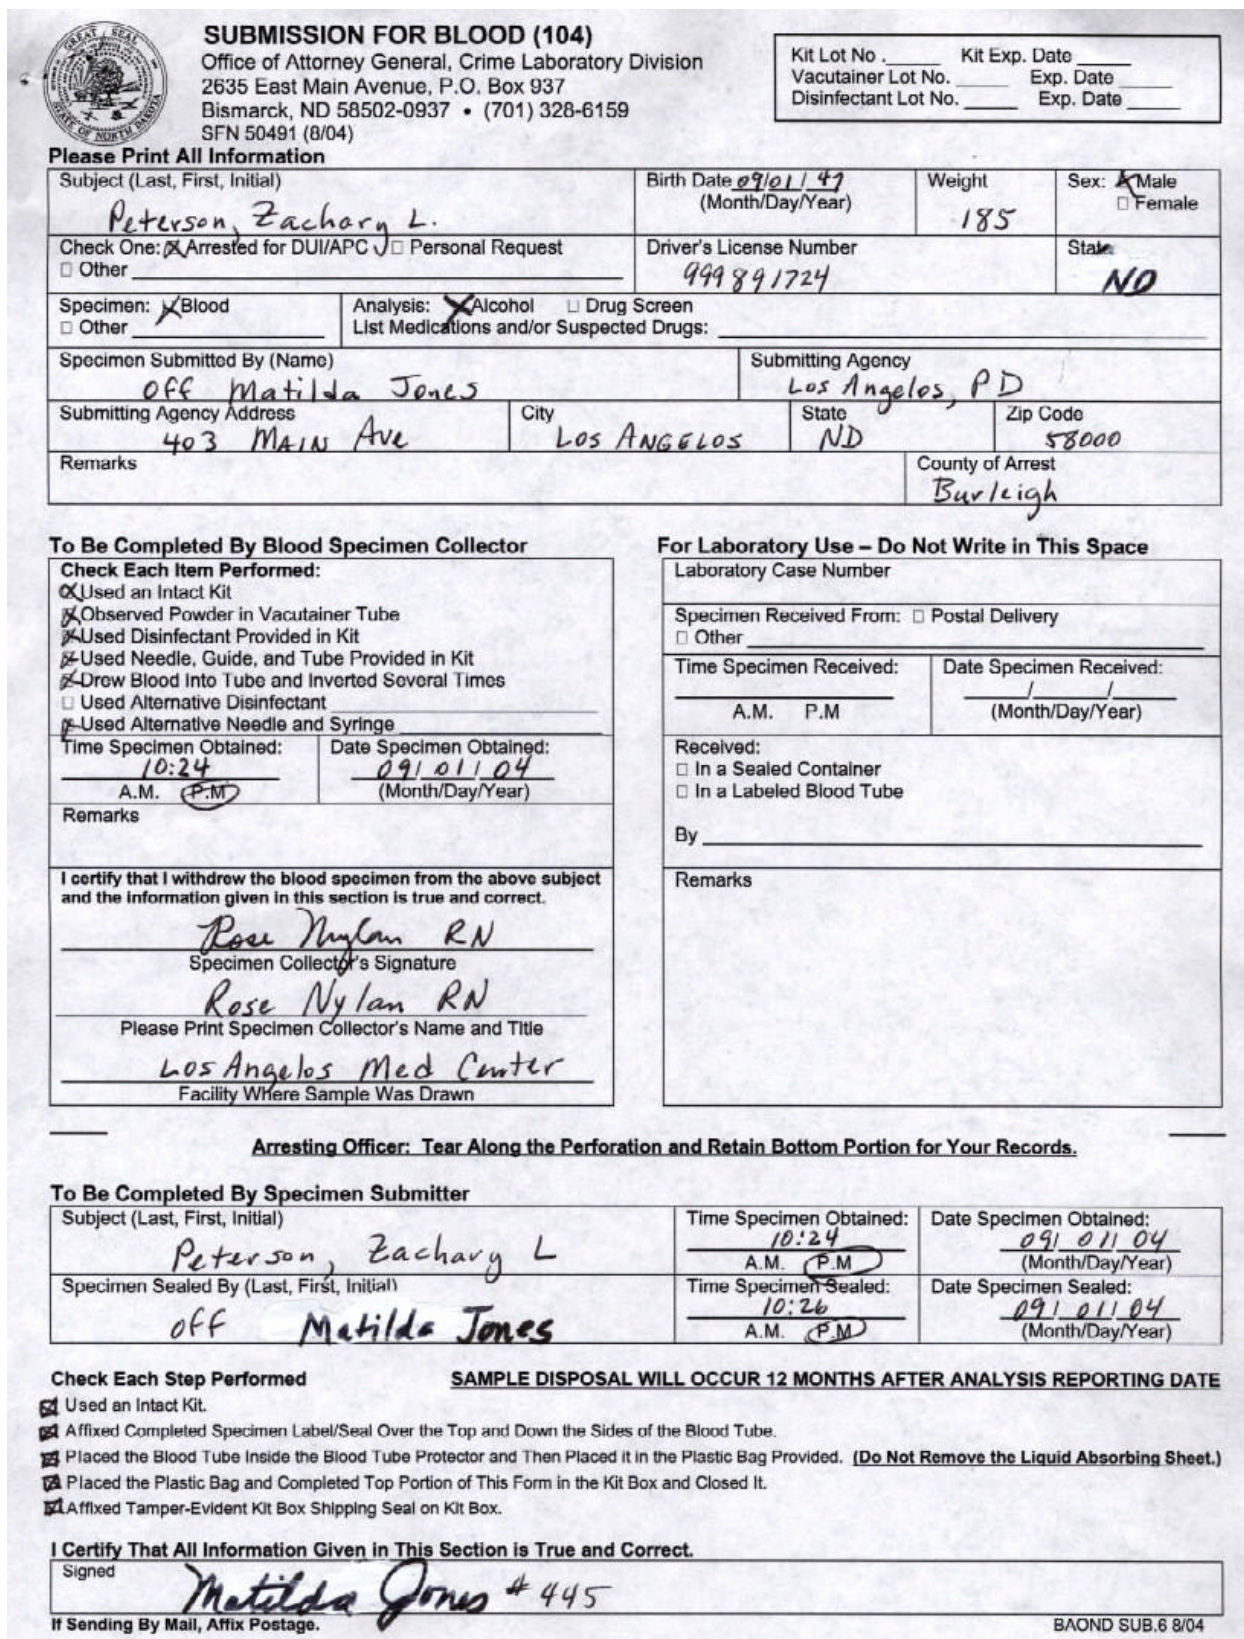 GREAT SEAL
STATE OF NORTH DAKOTA
SUBMISSION FOR BLOOD (104)
Office of Attorney General, Crime Laboratory Division
2635 East Main Avenue, P.O. Box 937
Bismarck, ND 58502-0937 • (701) 328-6159
SFN 50491 (8/04)
Kit Lot No. Kit Exp. Date
Vacutainer Lot No. Exp. Date
Disinfectant Lot No. Exp. Date
Please Print All Information
Subject (Last, First, Initial) Birth Date 09/01/47 Weight Sex: Male
(Month/Day/Year) Female
Peterson, Zachary L. 185
Check One: Arrested for DUI/APC Personal Request Driver's License Number State
Other 999891724 ND
Specimen: Blood Analysis: Alcohol Drug Screen
Other List Medications and/or Suspected Drugs:
Specimen Submitted By (Name) Submitting Agency
Off Matilda Jones Los Angelos, PD
Submitting Agency Address City State Zip Code
403 MAIN Ave LOS ANGELOS ND 58000
Remarks County of Arrest
Burleigh
To Be Completed By Blood Specimen Collector
Check Each Item Performed:
Used an Intact Kit
Observed Powder in Vacutainer Tube
Used Disinfectant Provided in Kit
Used Needle, Guide, and Tube Provided in Kit
Drew Blood Into Tube and Inverted Several Times
Used Alternative Disinfectant
Used Alternative Needle and Syringe
Time Specimen Obtained: Date Specimen Obtained:
10:24 09/01/04
A.M. P.M (Month/Day/Year)
Remarks
I certify that I withdrew the blood specimen from the above subject
and the information given in this section is true and correct.
Rose Nylan RN
Specimen Collector's Signature
Rose Nylan RN
Please Print Specimen Collector's Name and Title
Los Angelos Med Center
Facility Where Sample Was Drawn
For Laboratory Use – Do Not Write in This Space
Laboratory Case Number
Specimen Received From: Postal Delivery
Other
Time Specimen Received: Date Specimen Received:
/ /
A.M. P.M (Month/Day/Year)
Received:
In a Sealed Container
In a Labeled Blood Tube
By
Remarks
Arresting Officer: Tear Along the Perforation and Retain Bottom Portion for Your Records.
To Be Completed By Specimen Submitter
Subject (Last, First, Initial) Time Specimen Obtained: Date Specimen Obtained:
Peterson, Zachary L 10:24 09/01/04
A.M. P.M (Month/Day/Year)
Specimen Sealed By (Last, First, Initial) Time Specimen Sealed: Date Specimen Sealed:
Off Matilda Jones 10:26 09/01/04
A.M. P.M (Month/Day/Year)
Check Each Step Performed SAMPLE DISPOSAL WILL OCCUR 12 MONTHS AFTER ANALYSIS REPORTING DATE
Used an Intact Kit.
Affixed Completed Specimen Label/Seal Over the Top and Down the Sides of the Blood Tube.
Placed the Blood Tube Inside the Blood Tube Protector and Then Placed it in the Plastic Bag Provided. (Do Not Remove the Liquid Absorbing Sheet.)
Placed the Plastic Bag and Completed Top Portion of This Form in the Kit Box and Closed It.
Affixed Tamper-Evident Kit Box Shipping Seal on Kit Box.
I Certify That All Information Given in This Section is True and Correct.
Signed
Matilda Jones #445
If Sending By Mail, Affix Postage. BAOND SUB.6 8/04